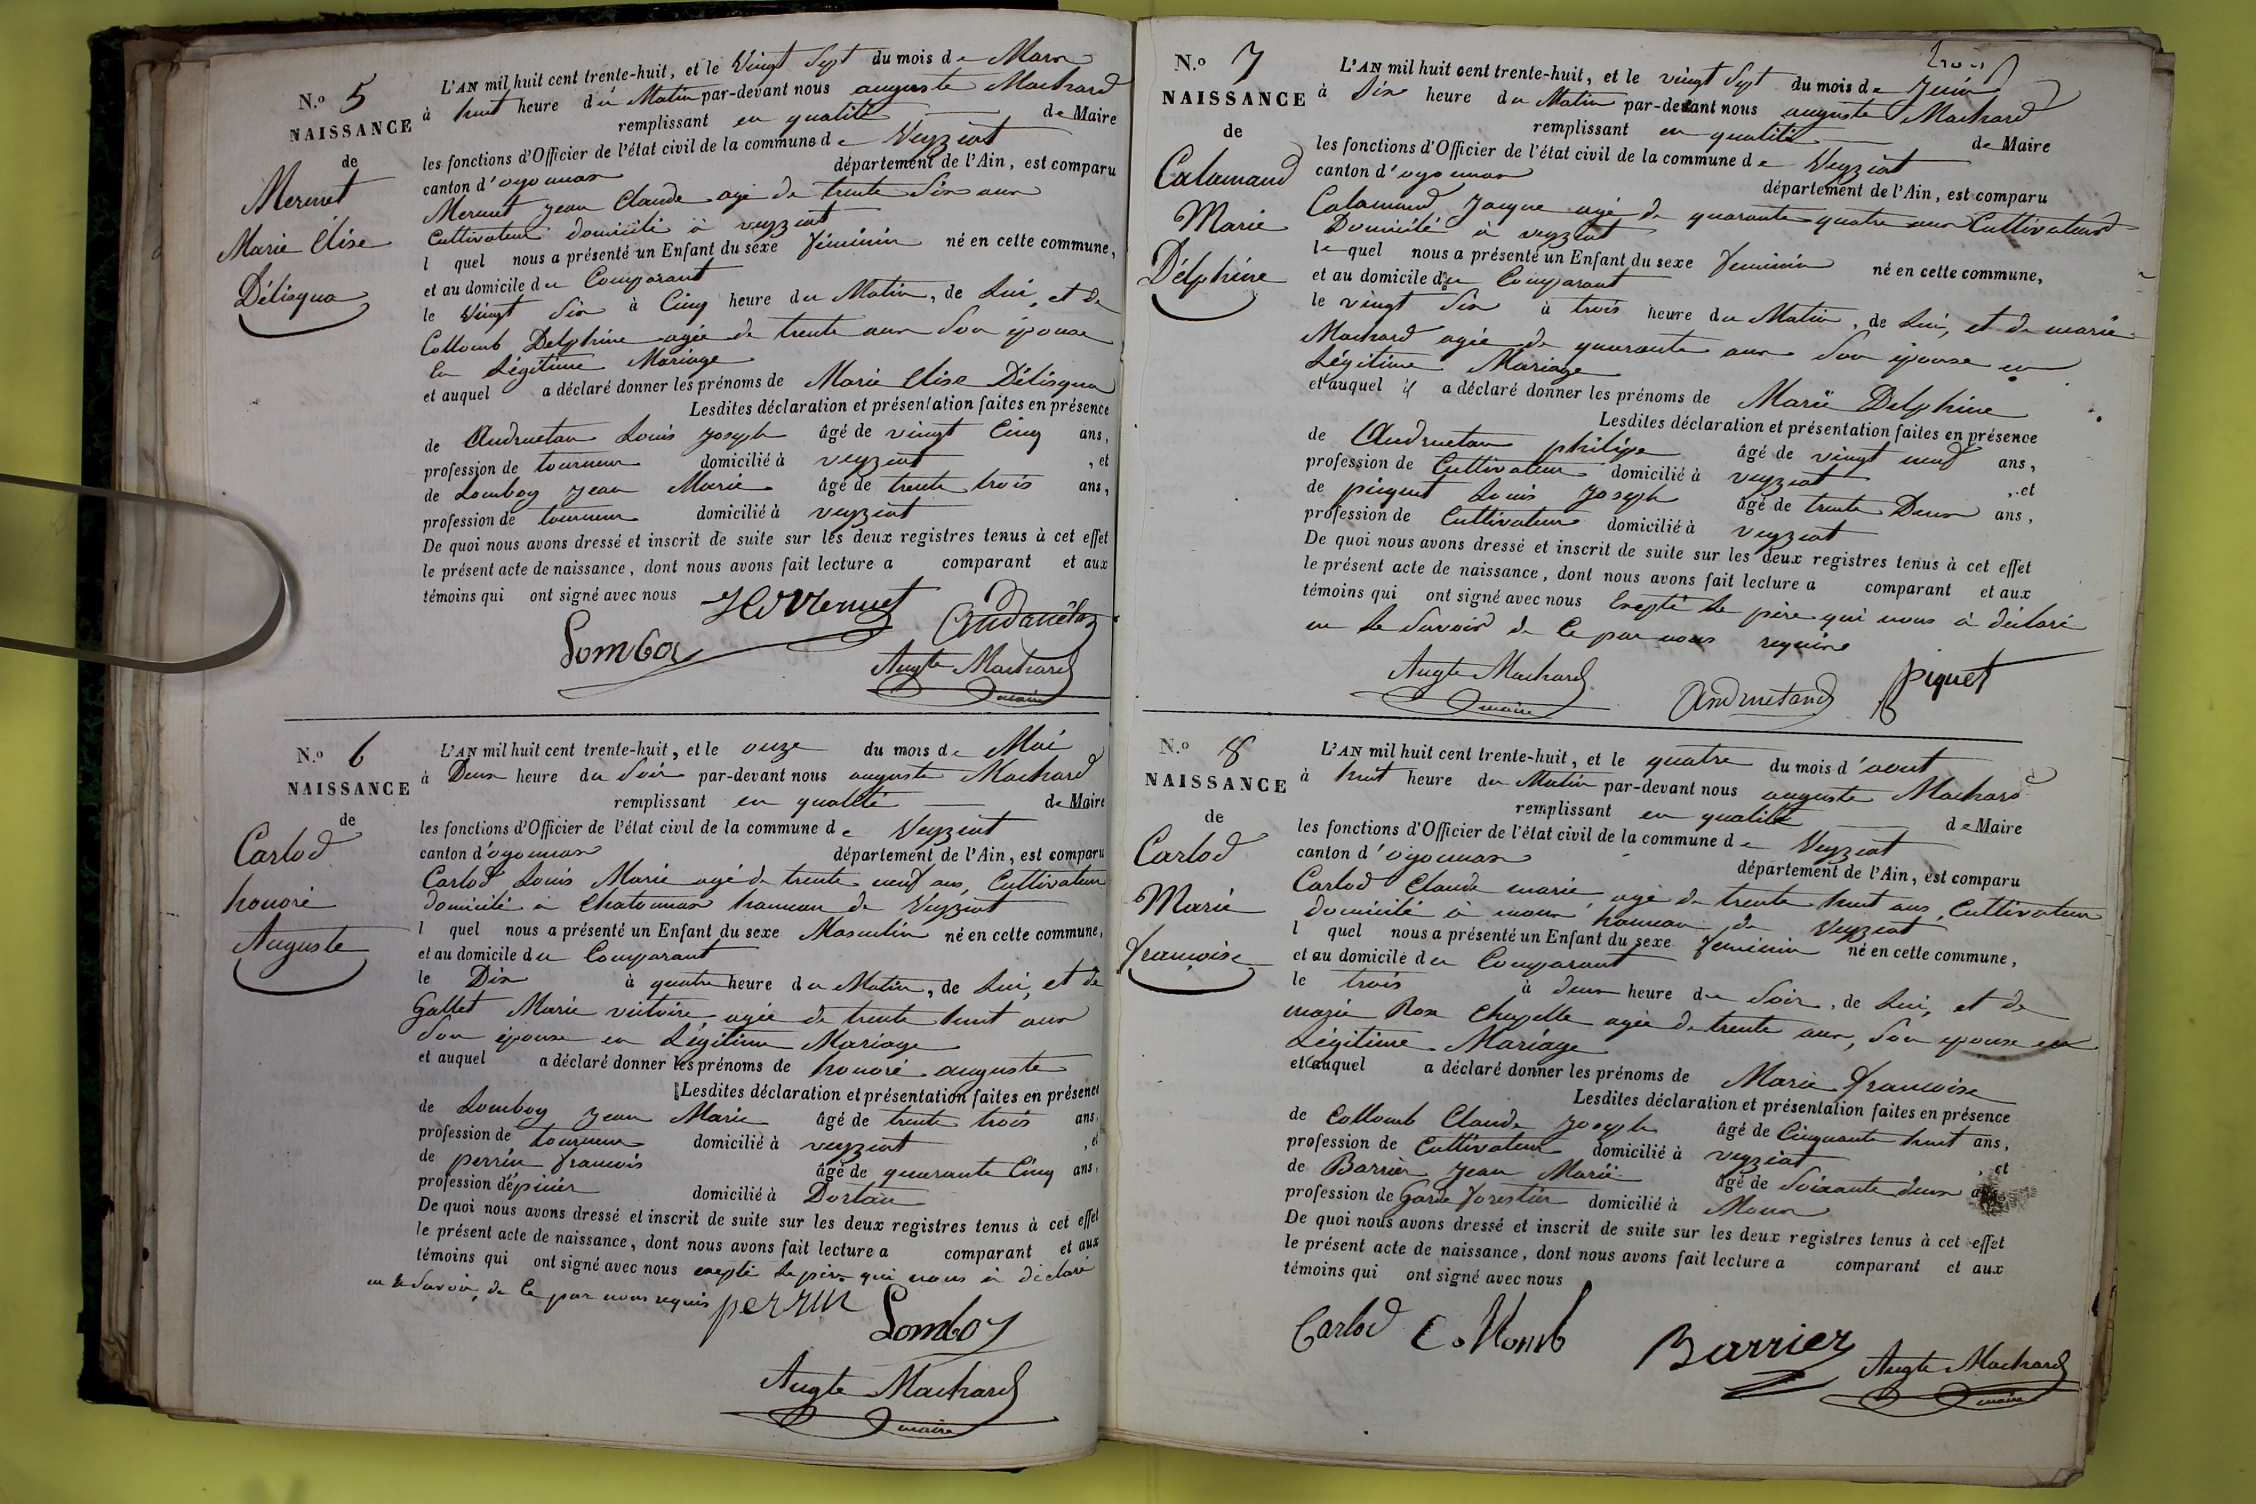 N.o 5
NAISSANCE
de
Mermet
Marie Elise
Délisqua
L'AN mil huit cent trente-huit, et le Vingt Sept du mois de Mars
à huit heure du Matin par-devant nous auguste Machard
remplissant en qualité de Maire
les fonctions d'Officier de l'état civil de la commune de Veyziat
canton d'oyonnax département de l'Ain, est comparu
Mermet jean Claude agé de trente Six ans
Cultivateur domicilié à veyziat
l quel nous a présenté un Enfant du sexe féminin né en cette commune,
et au domicile du Comparant
le Vingt Six à Cinq heure du Matin, de Lui, et de
Collomb Delphine agée de trente ans Son épouse
En Légitime Mariage
et auquel a déclaré donner les prénoms de Marie Elise Délisqua
Lesdites déclaration et présentation faites en présence
de Andruetan Louis joseph âgé de vingt Cinq ans,
profession de tourneur domicilié à veyziat , et
de Lomboy jean Marie âgé de trente trois ans,
profession de tourneur domicilié à veyziat
De quoi nous avons dressé et inscrit de suite sur les deux registres tenus à cet effet
le présent acte de naissance, dont nous avons fait lecture a comparant et aux
témoins qui ont signé avec nous
Augte Machard
maire
N.o 6
NAISSANCE
de
Carlod
honoré
Auguste
L'AN mil huit cent trente-huit, et le onze du mois de Mai
à Deux heure du Soir par-devant nous auguste Machard
remplissant en qualité de Maire
les fonctions d'Officier de l'état civil de la commune de Veyziat
canton d'oyonnax département de l'Ain, est comparu
Carlod Louis Marie agé de trente neuf ans, Cultivateur
domicilié à Chatonnax hameau de Veyziat
l quel nous a présenté un Enfant du sexe Masculin né en cette commune,
et au domicile du Comparant
le Dix à quatre heure du Matin, de Lui, et de
Gallet Marie victoire agée de trente huit ans
Son épouse en Légitime Mariage
et auquel a déclaré donner les prénoms de honoré auguste
Lesdites déclaration et présentation faites en présence
de Lomboy jean Marie âgé de trente trois ans,
profession de tourneur domicilié à veyziat , et
de perrin francois âgé de quarante Cinq ans,
profession d'épicier domicilié à Dortan
De quoi nous avons dressé et inscrit de suite sur les deux registres tenus à cet effet
le présent acte de naissance, dont nous avons fait lecture a comparant et aux
témoins qui ont signé avec nous excepté le père qui nous à déclaré
ne le Savoir, de Ce par nous requis
perrin
Lomboy
Augte Machard
maire
trois
N.o 7
NAISSANCE
de
Calamand
Marie
Délphine
L'AN mil huit cent trente-huit, et le vingt Sept du mois de Juin
à Six heure du Matin par-devant nous auguste Machard
remplissant en qualité de Maire
les fonctions d'Officier de l'état civil de la commune de Veyziat
canton d'oyonnax département de l'Ain, est comparu
Calamand Jacque agé de quarante quatre ans Cultivateur
Domicilié à veyziat
le quel nous a présenté un Enfant du sexe feminin né en cette commune,
et au domicile du Comparant
le vingt Six à trois heure du Matin, de Lui, et de marie
Machard agée de quarante ans Son épouse en
Légitime Mariage
et auquel il a déclaré donner les prénoms de Marie Delphine
Lesdites déclaration et présentation faites en présence
de Andruetan philipe âgé de vingt neuf ans,
profession de Cultivateur domicilié à veyziat , et
de piquet Louis joseph âgé de trente Deux ans,
profession de Cultivateur domicilié à veyziat
De quoi nous avons dressé et inscrit de suite sur les deux registres tenus à cet effet
le présent acte de naissance, dont nous avons fait lecture a comparant et aux
témoins qui ont signé avec nous Excepté le père qui nous à déclaré
ne le Savoir de Ce par nous requis
Augte Machard
maire
Andruetand
piquet
N.o 8
NAISSANCE
de
Carlod
Marie
françoise
L'AN mil huit cent trente-huit, et le quatre du mois d'aout
à huit heure du Matin par-devant nous auguste Machard
remplissant en qualité de Maire
les fonctions d'Officier de l'état civil de la commune de Veyziat
canton d'oyonnax département de l'Ain, est comparu
Carlod Claude marie agé de trente huit ans, Cultivateur
domicilié à mons, hameau de Veyziat
l quel nous a présenté un Enfant du sexe feminin né en cette commune,
et au domicile du Comparant
le trois à deux heure du Soir, de Lui, et de
marie Rose Chapelle agée de trente ans, Son epouse en
Légitime Mariage
et auquel a déclaré donner les prénoms de Marie francoise
Lesdites déclaration et présentation faites en présence
de Collomb Claude joseph âgé de Cinquante huit ans,
profession de Cultivateur domicilié à veyziat , et
de Barrier jean Marie âgé de Soixante deux ans,
profession de Garde forestier domicilié à Mons
De quoi nous avons dressé et inscrit de suite sur les deux registres tenus à cet effet
le présent acte de naissance, dont nous avons fait lecture a comparant et aux
témoins qui ont signé avec nous
Carlod Collomb Barrier Augte Machard
maire